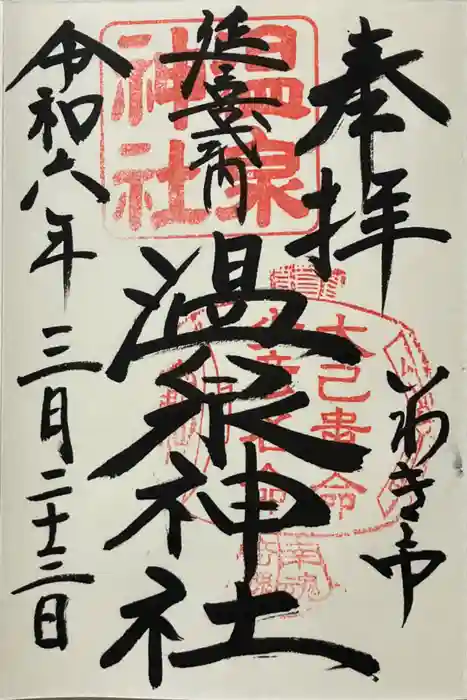 奉拝
いわき市
延喜式内
温泉神社
令和六年
三月二十三日
温泉
神社
大己貴命
少彦名命